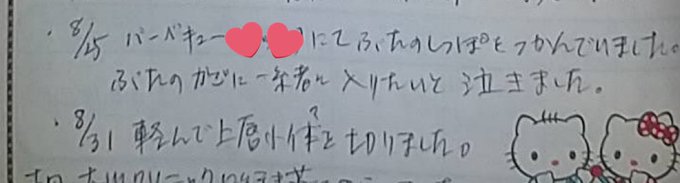 ・8/25 バーベキュー にて ぶたのしっぽをつかんでいました。
ぶたの かごに 一緒に 入りたいと 泣きました。
・8/31 転んで上唇小体?を切りました。